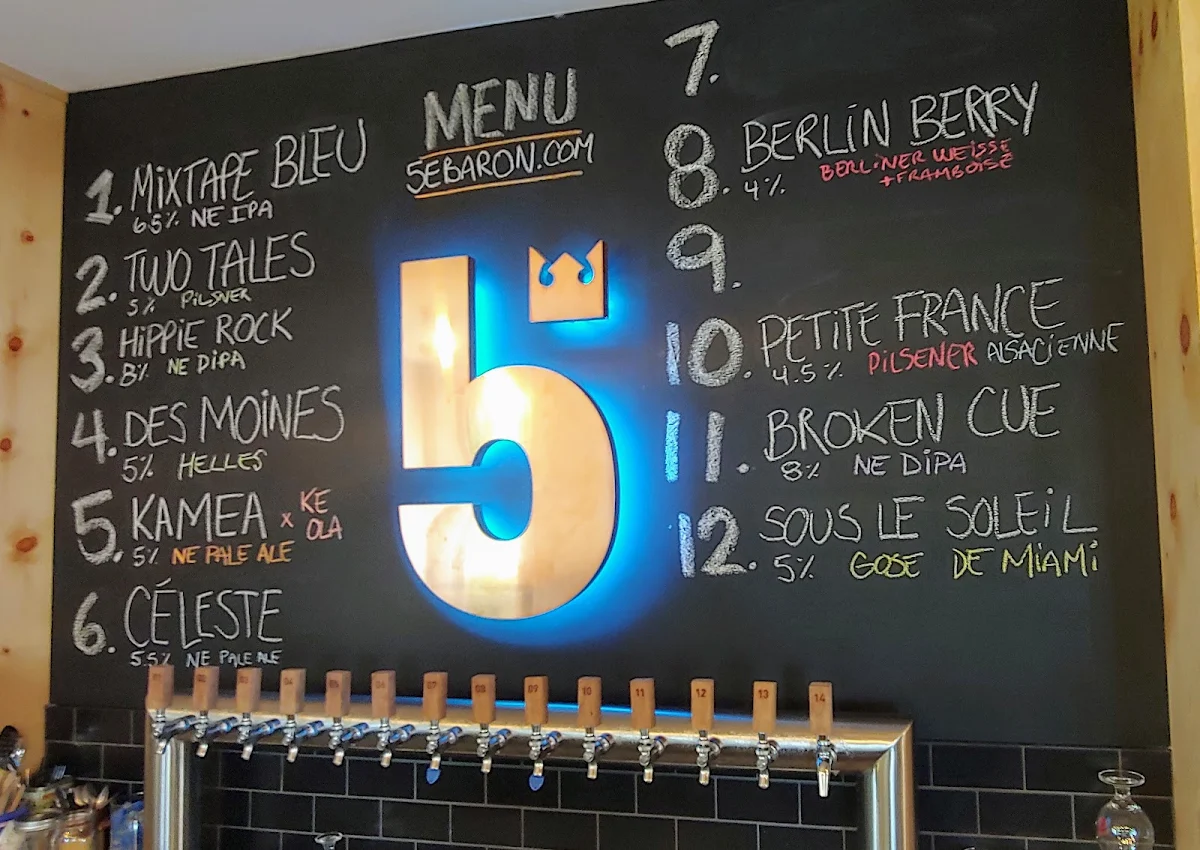 MENU
5EBARON.COM
1. MIXTAPE BLEU
6.5% NE IPA
2. TWO TALES
5% PILSNER
3. HIPPIE ROCK
8% NE DIPA
4. DES MOINES
5% HELLES
5. KAMEA x KE OLA
5% NE PALE ALE
6. CÉLESTE
5.5% NE PALE ALE
5
7.
8. BERLIN BERRY
4% BERLINER WEISSE
+FRAMBOISE
9.
10. PETITE FRANCE
4.5% PILSENER ALSACIENNE
11. BROKEN CUE
8% NE DIPA
12. SOUS LE SOLEIL
5% GOSE DE MIAMI
01 02 03 04 05 06 07 08 09 10 11 12 13 14